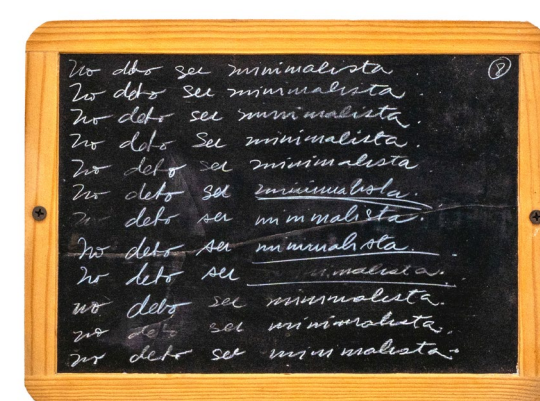 no debo ser minimalista. 8
no debo ser minimalista.
no debo ser minimalista.
no debo ser minimalista.
no debo ser minimalista
no debo ser minimalista.
no debo ser minimalista.
no debo ser minimalista.
no debo ser minimalista.
no debo ser minimalista.
no debo ser minimalista.
no debo ser minimalista.